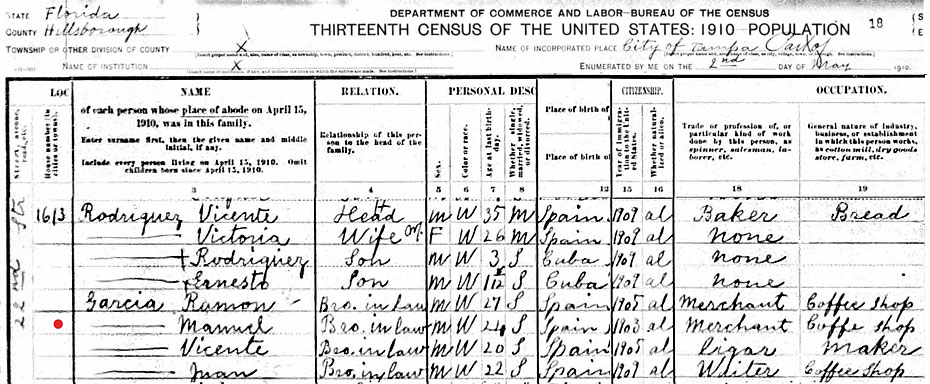 STATE Florida
COUNTY Hillsborough
DEPARTMENT OF COMMERCE AND LABOR–BUREAU OF THE CENSUS
THIRTEENTH CENSUS OF THE UNITED STATES: 1910 POPULATION 18
TOWNSHIP OR OTHER DIVISION OF COUNTY X
NAME OF INCORPORATED PLACE City of Tampa
NAME OF INSTITUTION X
ENUMERATED BY ME ON THE 2nd DAY OF May 1910.
LOC NAME RELATION. PERSONAL DESC CITIZENSHIP. OCCUPATION.
of each person whose place of abode on April 15, 1910, was in this family.
Enter surname first, then the given name and middle initial, if any.
Include every person living on April 15, 1910. Omit children born since April 15, 1910.
Relationship of this person to the head of the family.
Sex.
Color or race.
Age at last birthday.
Whether single, married, widowed, or divorced.
Place of birth of
Place of birth of
Year of immigration to the United States.
Whether naturalized or alien.
Trade or profession of, or particular kind of work done by this person, as spinner, salesman, laborer, etc.
General nature of industry, business, or establishment in which this person works, as cotton mill, dry goods store, farm, etc.
3 4 5 6 7 8 12 15 16 18 19
22nd Str
1613 Rodriguez Vicente Head M W 35 M Spain 1909 al Baker Bread
Victoria Wife F W 26 M Spain 1909 al None
Rodriguez Son M W 3 S Cuba 1909 al none
Ernesto Son M W S Cuba 1909 al none
Garcia Ramon Bro. in law M W 27 S Spain 1905 al Merchant Coffee shop
Manuel Bro. in law M W 24 S Spain 1903 al Merchant Coffe shop
Vicente Bro. in law M W 20 S Spain 1905 al Cigar Maker
Juan Bro. in law M W 22 S Spain 1909 al Waiter Coffee Shop